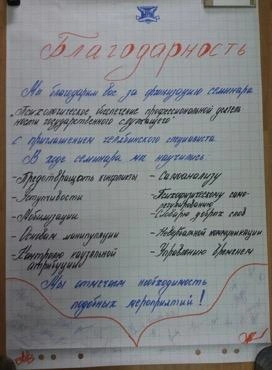 Благодарность
Мы благодарим вас за организацию семинара
"Психологическое обеспечение профессиональной деятель-
ности государственного служащего"
с приглашением челябинского специалиста
В ходе семинара мы научились
- Предотвращать конфликты - Самоанализу
- Уступчивости - Психофизическому само-
регулированию
- Мобилизации - Словарю добрых слов
- Основам манипуляции - Невербальной коммуникации
- Контролю каузальной - Управлению временем
атрибуции
Мы отмечаем необходимость
подобных мероприятий!